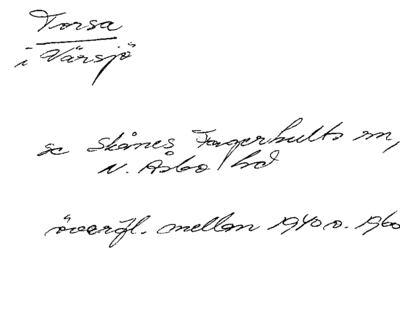 Torsa
i Värsjö
se Skånes Fagerhults sn,
N. Åsbo hd
överfl. mellan 1940 o. 1960